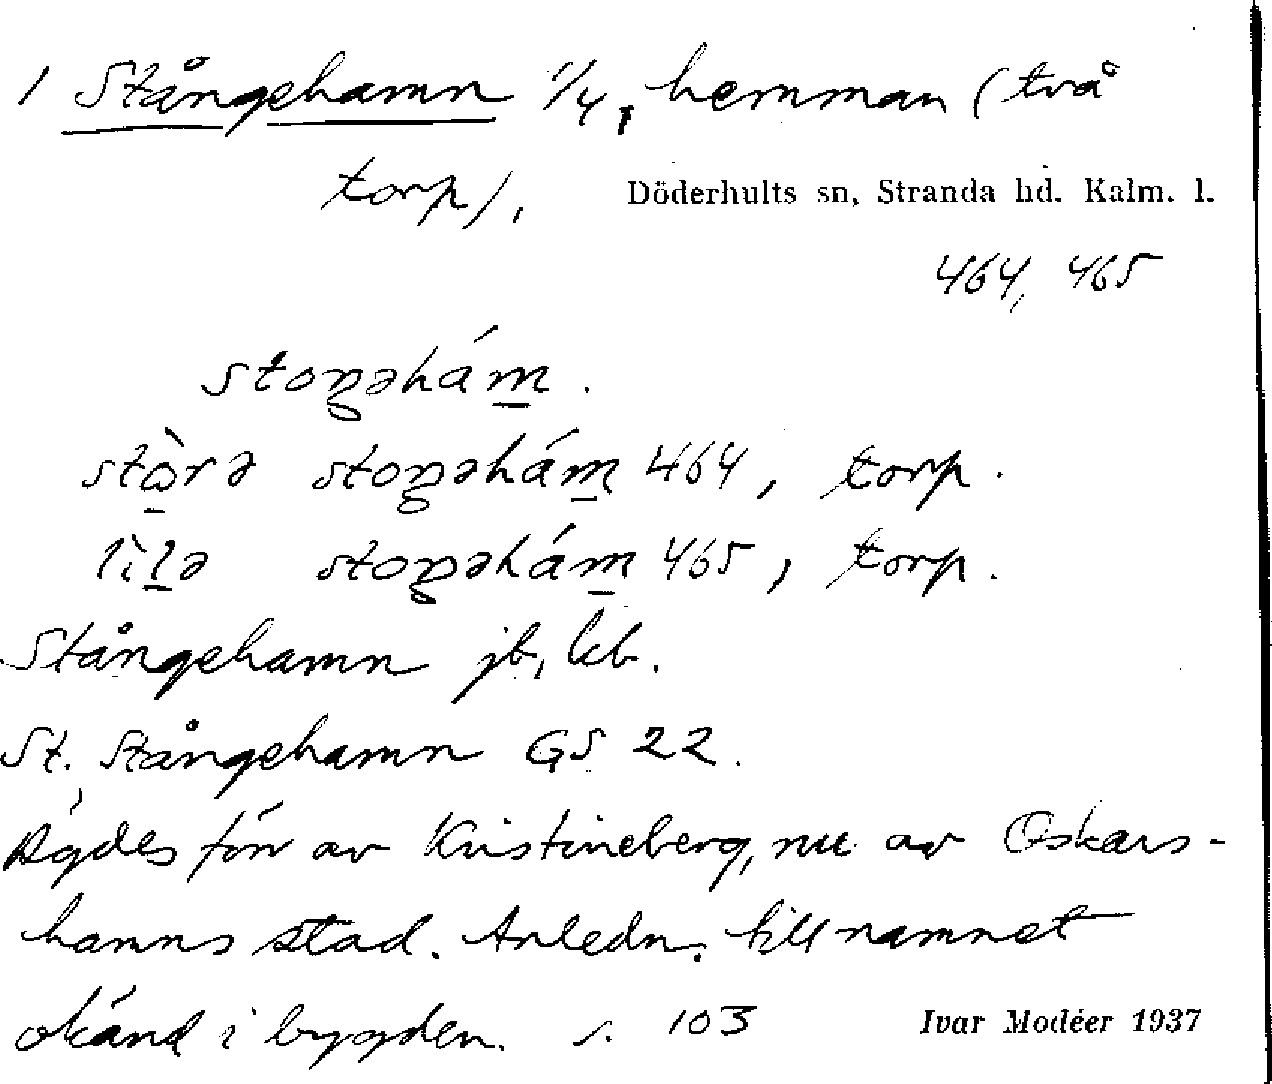 1 Stångehamn 1/4, hemman (två
torp),
Döderhults sn, Stranda hd. Kalm. l.
464, 465
stoŋəhám̱.
stò̱rə stoŋəhám̱ 464, torp.
lìḻə stoŋəhám̱ 465, torp.
Stångehamn jb, kb.
St. Stångehamn GS 22.
Ägdes förr av Kristineberg, nu av Oskars-
hamns stad. Anledn. till namnet
okänd i bygden. s. 103
Ivar Modéer 1937